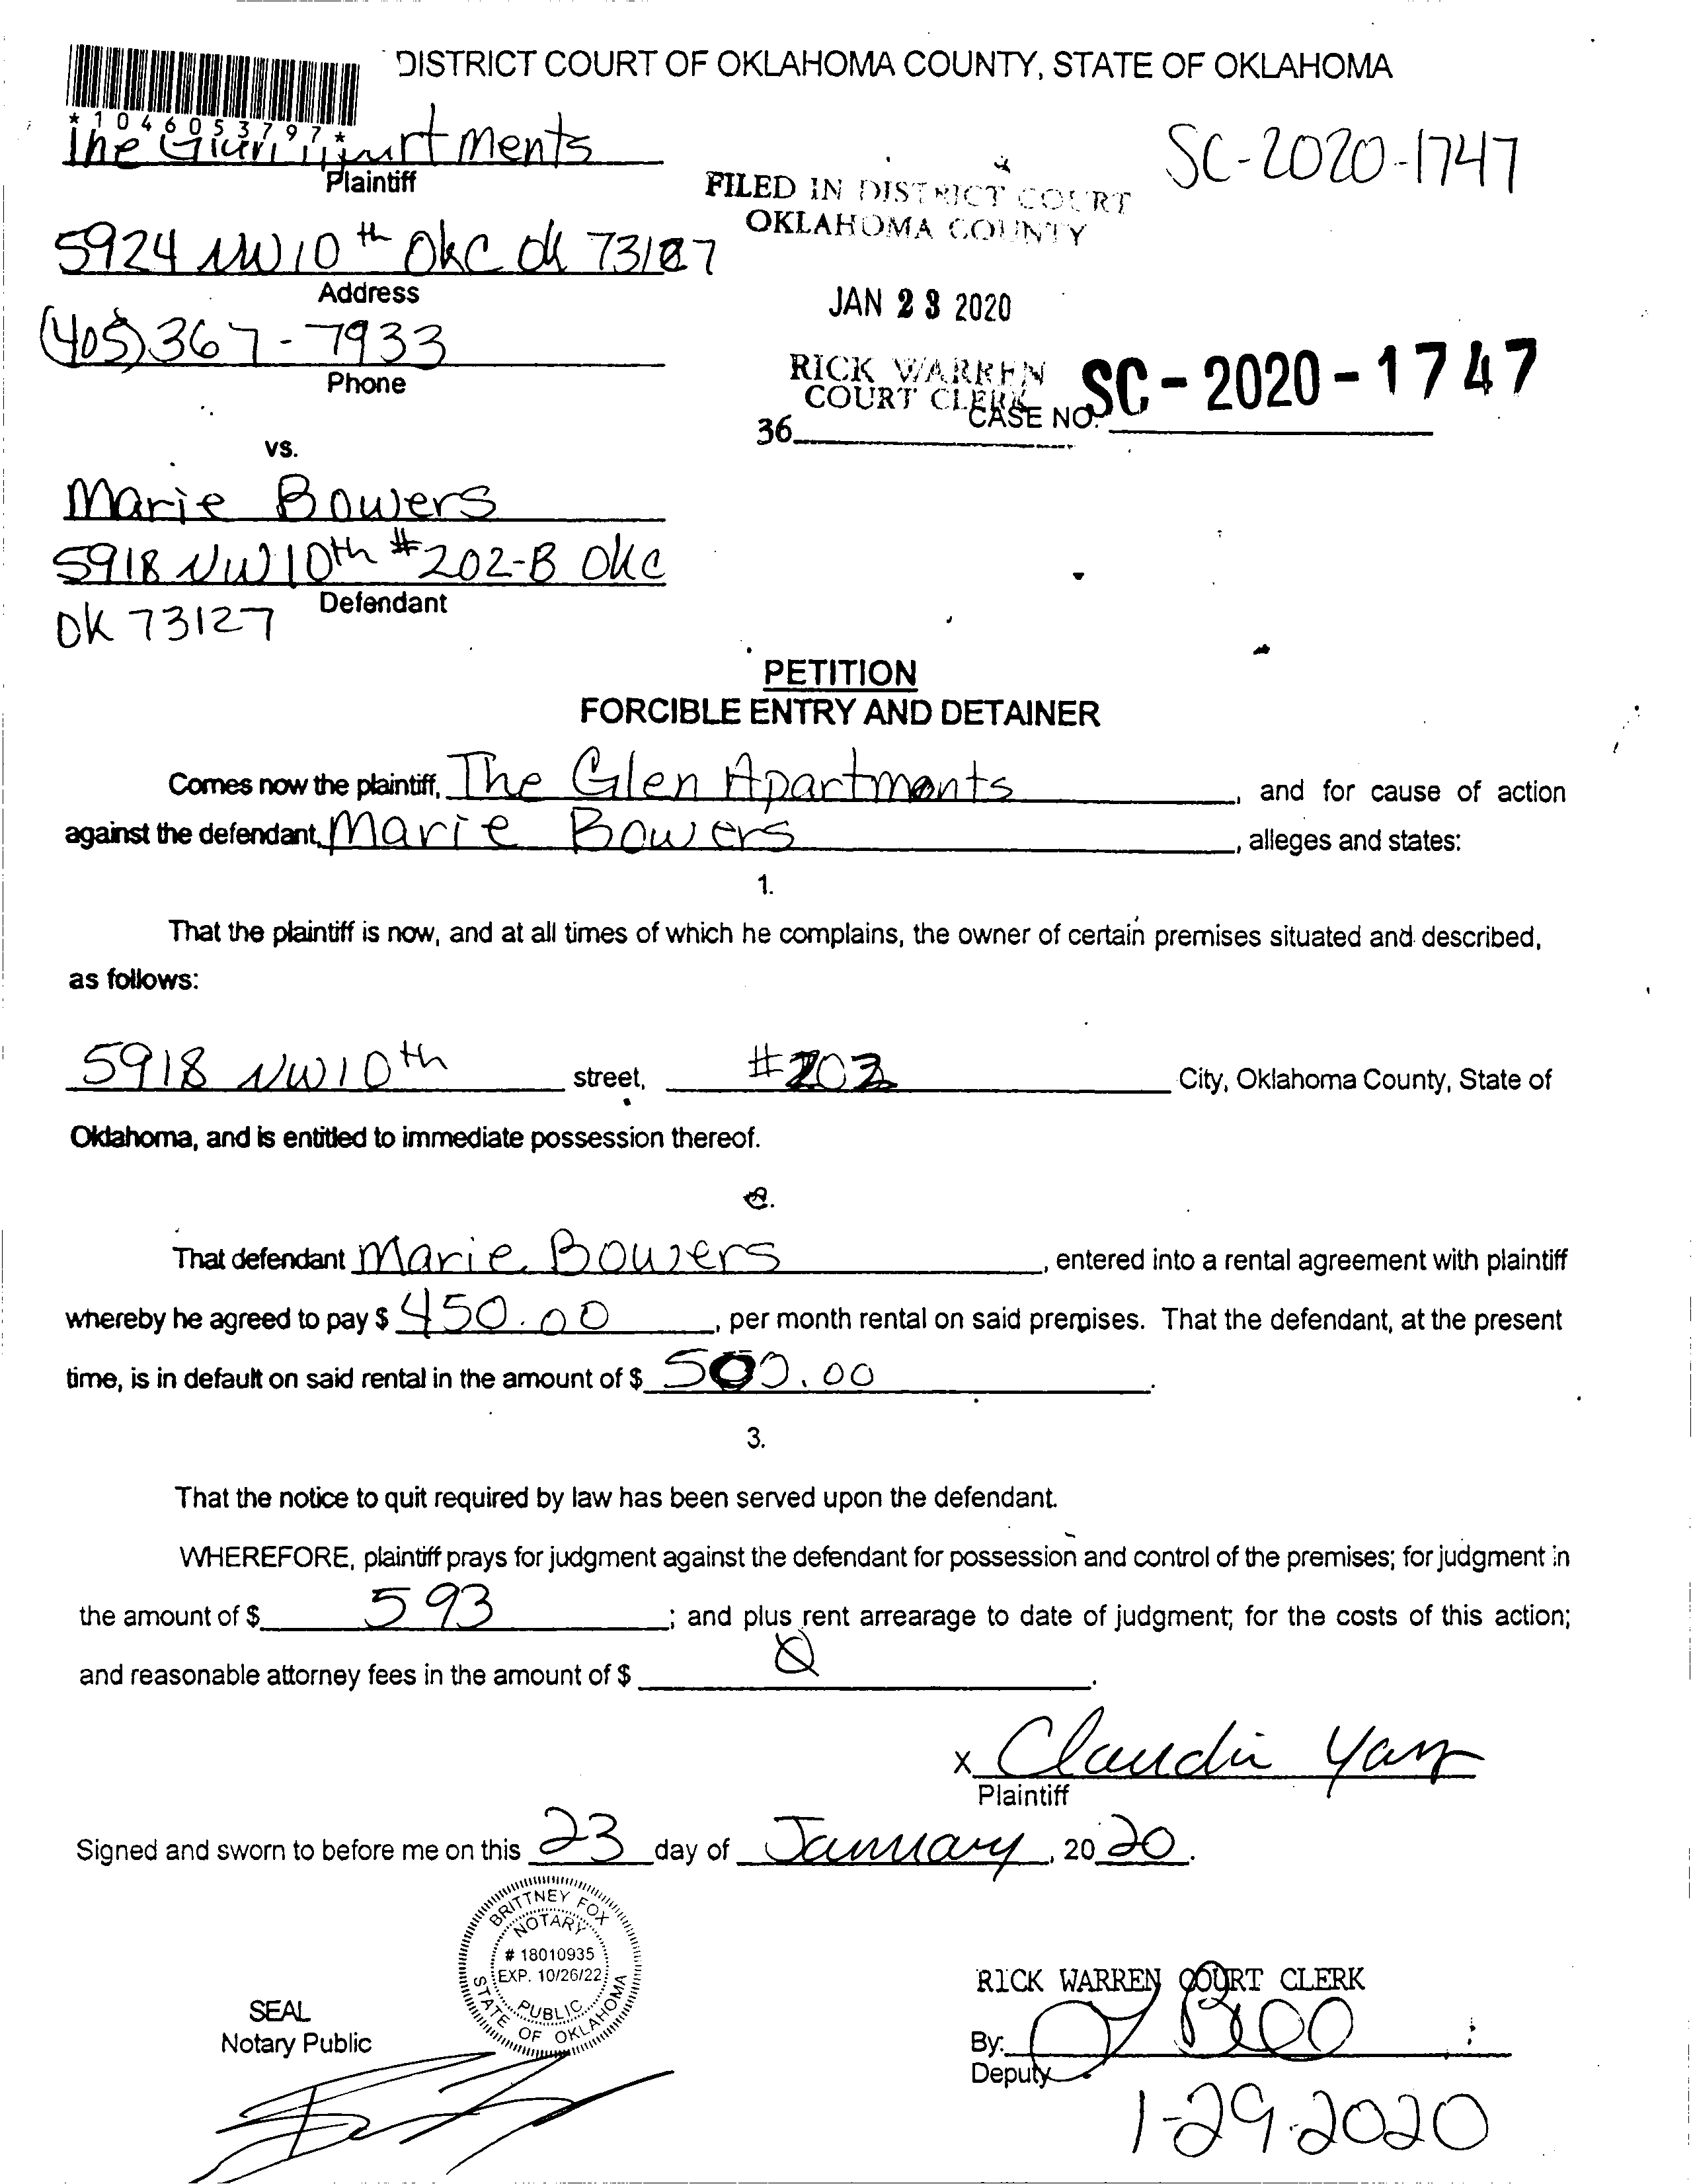 DISTRICT COURT OF OKLAHOMA COUNTY, STATE OF OKLAHOMA
*1046053797*
The Apartments
Plaintiff
SC-2020-1747
FILED IN DISTRICT COURT
OKLAHOMA COUNTY
5924 NW 10th OKC OK 73127
Address
JAN 23 2020
(405) 367-7933
Phone
RICK WARREN
COURT CLERK
CASE NO. SC-2020-1747
36
vs.
Marie Bowers
5918 NW 10th #202-B OKC
Defendant
OK 73127
PETITION
FORCIBLE ENTRY AND DETAINER
Comes now the plaintiff, The Glen Apartments, and for cause of action
against the defendant, Marie Bowers, alleges and states:
1.
That the plaintiff is now, and at all times of which he complains, the owner of certain premises situated and described,
as follows:
5918 NW 10th street, #202 City, Oklahoma County, State of
Oklahoma, and is entitled to immediate possession thereof.
2.
That defendant Marie Bowers, entered into a rental agreement with plaintiff
whereby he agreed to pay $ 450.00, per month rental on said premises. That the defendant, at the present
time, is in default on said rental in the amount of $ 500.00.
3.
That the notice to quit required by law has been served upon the defendant.
WHEREFORE, plaintiff prays for judgment against the defendant for possession and control of the premises; for judgment in
the amount of $ 593; and plus rent arrearage to date of judgment; for the costs of this action;
and reasonable attorney fees in the amount of $ .
X Claudia
Plaintiff
Signed and sworn to before me on this 23 day of January, 2020.
BRITTNEY FOX
NOTARY
# 18010935
EXP. 10/26/22
PUBLIC
STATE OF OKLAHOMA
SEAL
Notary Public
RICK WARREN COURT CLERK
By:
Deputy
1-29-2020